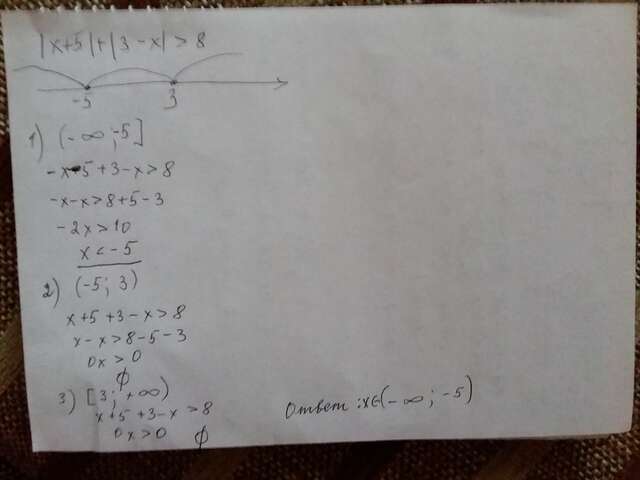 |x+5|+|3-x|>8
-5 3
1) (-∞;-5]
-x-5+3-x>8
-x-x>8+5-3
-2x>10
x<-5
2) (-5; 3)
x+5+3-x>8
x-x>8-5-3
0x>0
∅
3) [3; +∞)
x+5+3-x>8
0x>0 ∅
Ответ: x∈(-∞; -5)